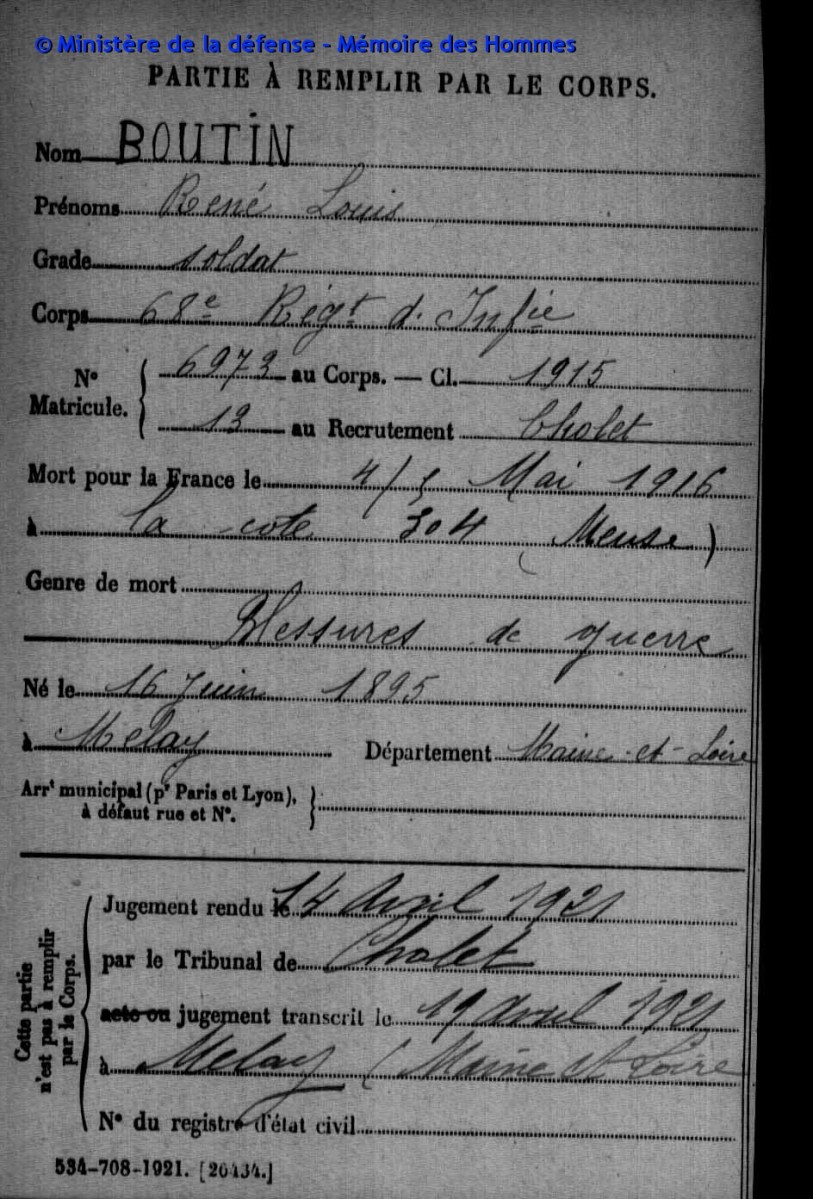 © Ministère de la défense - Mémoire des Hommes
PARTIE À REMPLIR PAR LE CORPS.
Nom BOUTIN
Prénoms René Louis
Grade soldat
Corps 68e Régt d'Infie
No Matricule. { 6973 au Corps. — Cl. 1915
13 au Recrutement Cholet
Mort pour la France le 4/5 Mai 1916
à la cote 304 (Meuse)
Genre de mort
Blessures de guerre
Né le 16 Juin 1895
à Melay Département Maine-et-Loire
Arrt municipal (pr Paris et Lyon),
à défaut rue et No.
Cette partie n'est pas à remplir par le Corps.
Jugement rendu le 14 Avril 1921
par le Tribunal de Cholet
acte ou jugement transcrit le 19 avril 1921
à Melay (Maine et Loire
No du registre d'état civil
534-708-1921. [26434.]